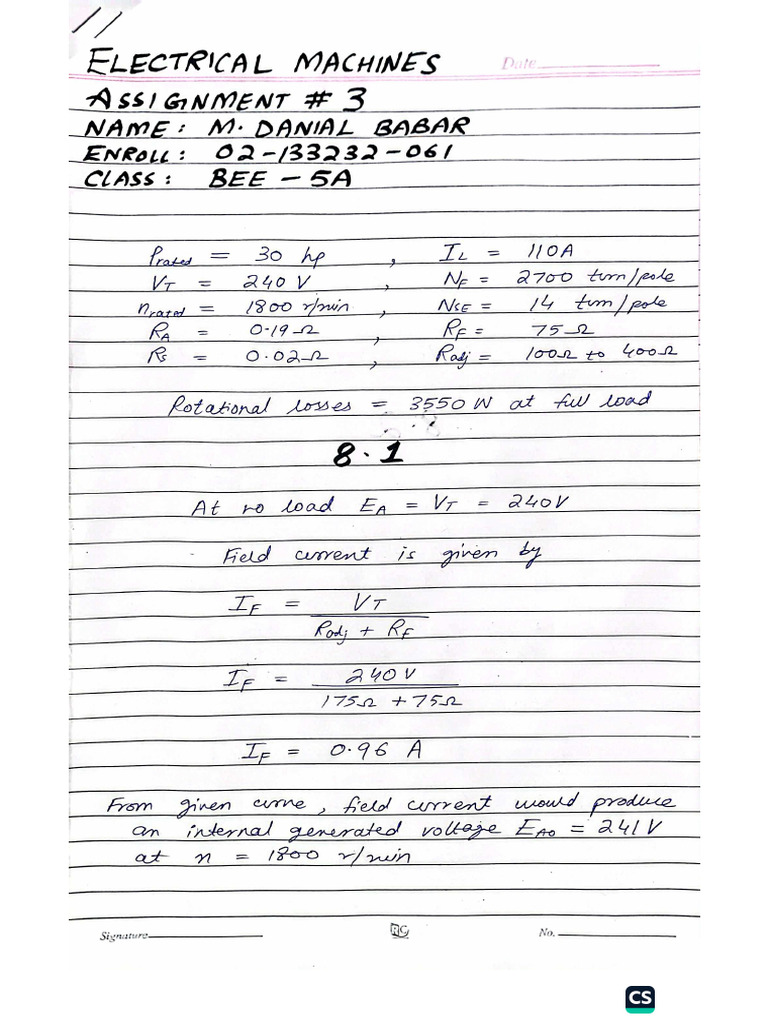 11
ELECTRICAL MACHINES Date
ASSIGNMENT # 3
NAME: M. DANIAL BABAR
ENROLL: 02-133232-061
CLASS: BEE - 5A
Prated = 30 hp , IL = 110A
VT = 240 V , NF = 2700 turn/pole
nrated = 1800 r/min , NSE = 14 turn/pole
RA = 0.19Ω , RF = 75Ω
Rs = 0.02Ω , Radj = 100Ω to 400Ω
Rotational losses = 3550 W at full load
8.1
At no load EA = VT = 240V
Field current is given by
IF = VT
Radj + RF
IF = 240 V
175Ω + 75Ω
IF = 0.96 A
From given curve, field current would produce
an internal generated voltage EAo = 241 V
at n = 1800 r/min
Signature RG No.
CS